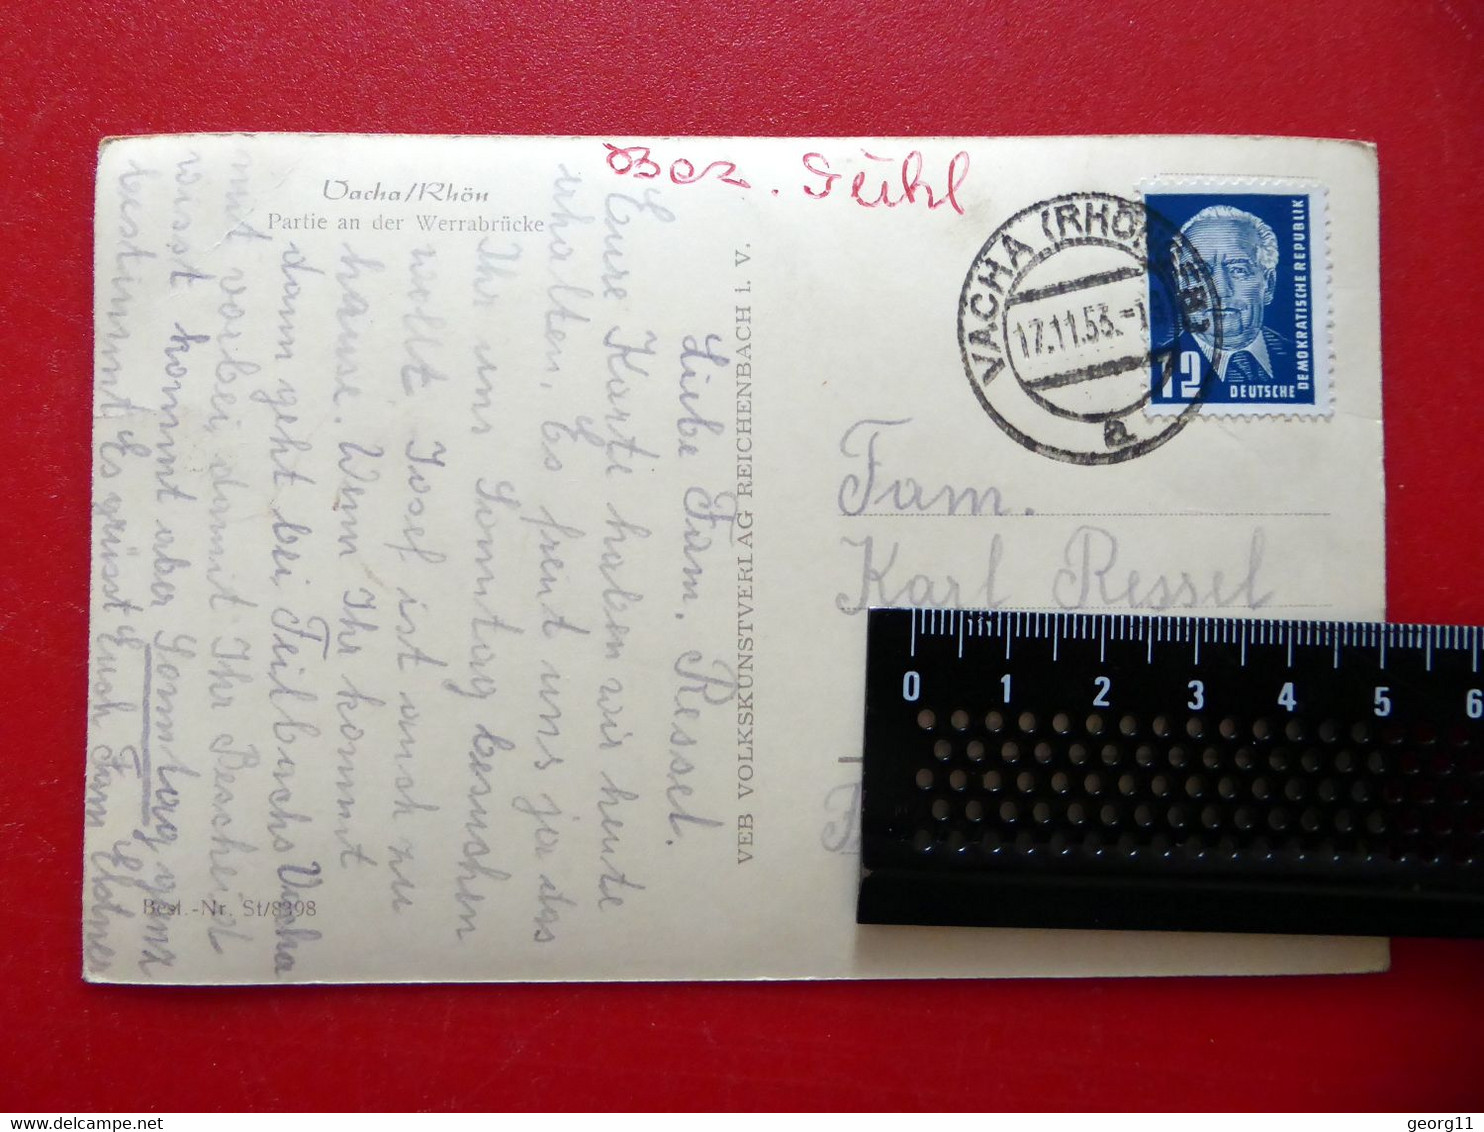 Vacha/Rhön
Partie an der Werrabrücke
Liebe Fam. Ressel.
Eure Karte haben wir heute
erhalten. Es freut uns ja das
Ihr uns Sonntag besuchen
wollt. Josef ist auch zu
hause. Wenn Ihr kommt
dann geht bei Feilbachs Vacha
mit vorbei, damit Ihr Bescheid
wisst kommt aber Sonntag ganz
bestimmt Es grüsst Euch Fam
Best.-Nr. St/8398
VEB VOLKSKUNSTVERLAG REICHENBACH I. V.
Bez. Suhl
VACHA (RHÖN)
17.11.53.-1
a
12
DEUTSCHE
DEMOKRATISCHE REPUBLIK
Fam.
Karl Ressel
0 1 2 3 4 5 6
www.delcampe.net
georg11